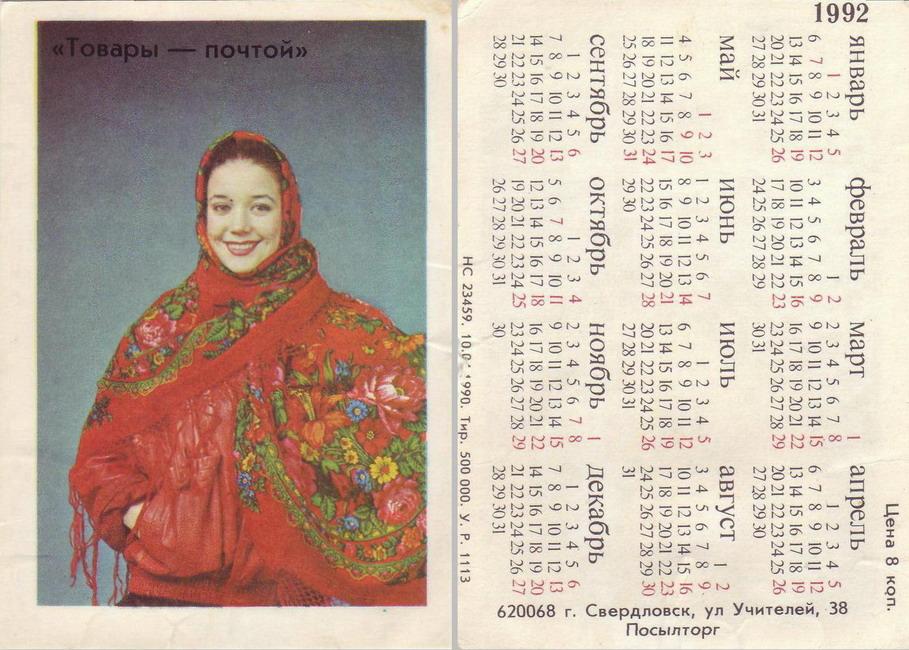 «Товары — почтой»
НС 23459. Тир. 500 000. У. Р. 1113
1992
январь
1 2 3 4 5
6 7 8 9 10 11 12
13 14 15 16 17 18 19
20 21 22 23 24 25 26
27 28 29 30 31
февраль
1 2
3 4 5 6 7 8 9
10 11 12 13 14 15 16
17 18 19 20 21 22 23
24 25 26 27 28 29
март
1
2 3 4 5 6 7 8
9 10 11 12 13 14 15
16 17 18 19 20 21 22
23 24 25 26 27 28 29
30 31
апрель
1 2 3 4 5
6 7 8 9 10 11 12
13 14 15 16 17 18 19
20 21 22 23 24 25 26
27 28 29 30
май
1 2 3
4 5 6 7 8 9 10
11 12 13 14 15 16 17
18 19 20 21 22 23 24
25 26 27 28 29 30 31
июнь
1 2 3 4 5 6 7
8 9 10 11 12 13 14
15 16 17 18 19 20 21
22 23 24 25 26 27 28
29 30
июль
1 2 3 4 5
6 7 8 9 10 11 12
13 14 15 16 17 18 19
20 21 22 23 24 25 26
27 28 29 30 31
август
1 2
3 4 5 6 7 8 9
10 11 12 13 14 15 16
17 18 19 20 21 22 23
24 25 26 27 28 29 30
31
сентябрь
1 2 3 4 5 6
7 8 9 10 11 12 13
14 15 16 17 18 19 20
21 22 23 24 25 26 27
28 29 30
октябрь
1 2 3 4
5 6 7 8 9 10 11
12 13 14 15 16 17 18
19 20 21 22 23 24 25
26 27 28 29 30 31
ноябрь
1
2 3 4 5 6 7 8
9 10 11 12 13 14 15
16 17 18 19 20 21 22
23 24 25 26 27 28 29
30
декабрь
1 2 3 4 5 6
7 8 9 10 11 12 13
14 15 16 17 18 19 20
21 22 23 24 25 26 27
28 29 30 31
Цена 8 коп.
620068 г. Свердловск, ул Учителей, 38
Посылторг